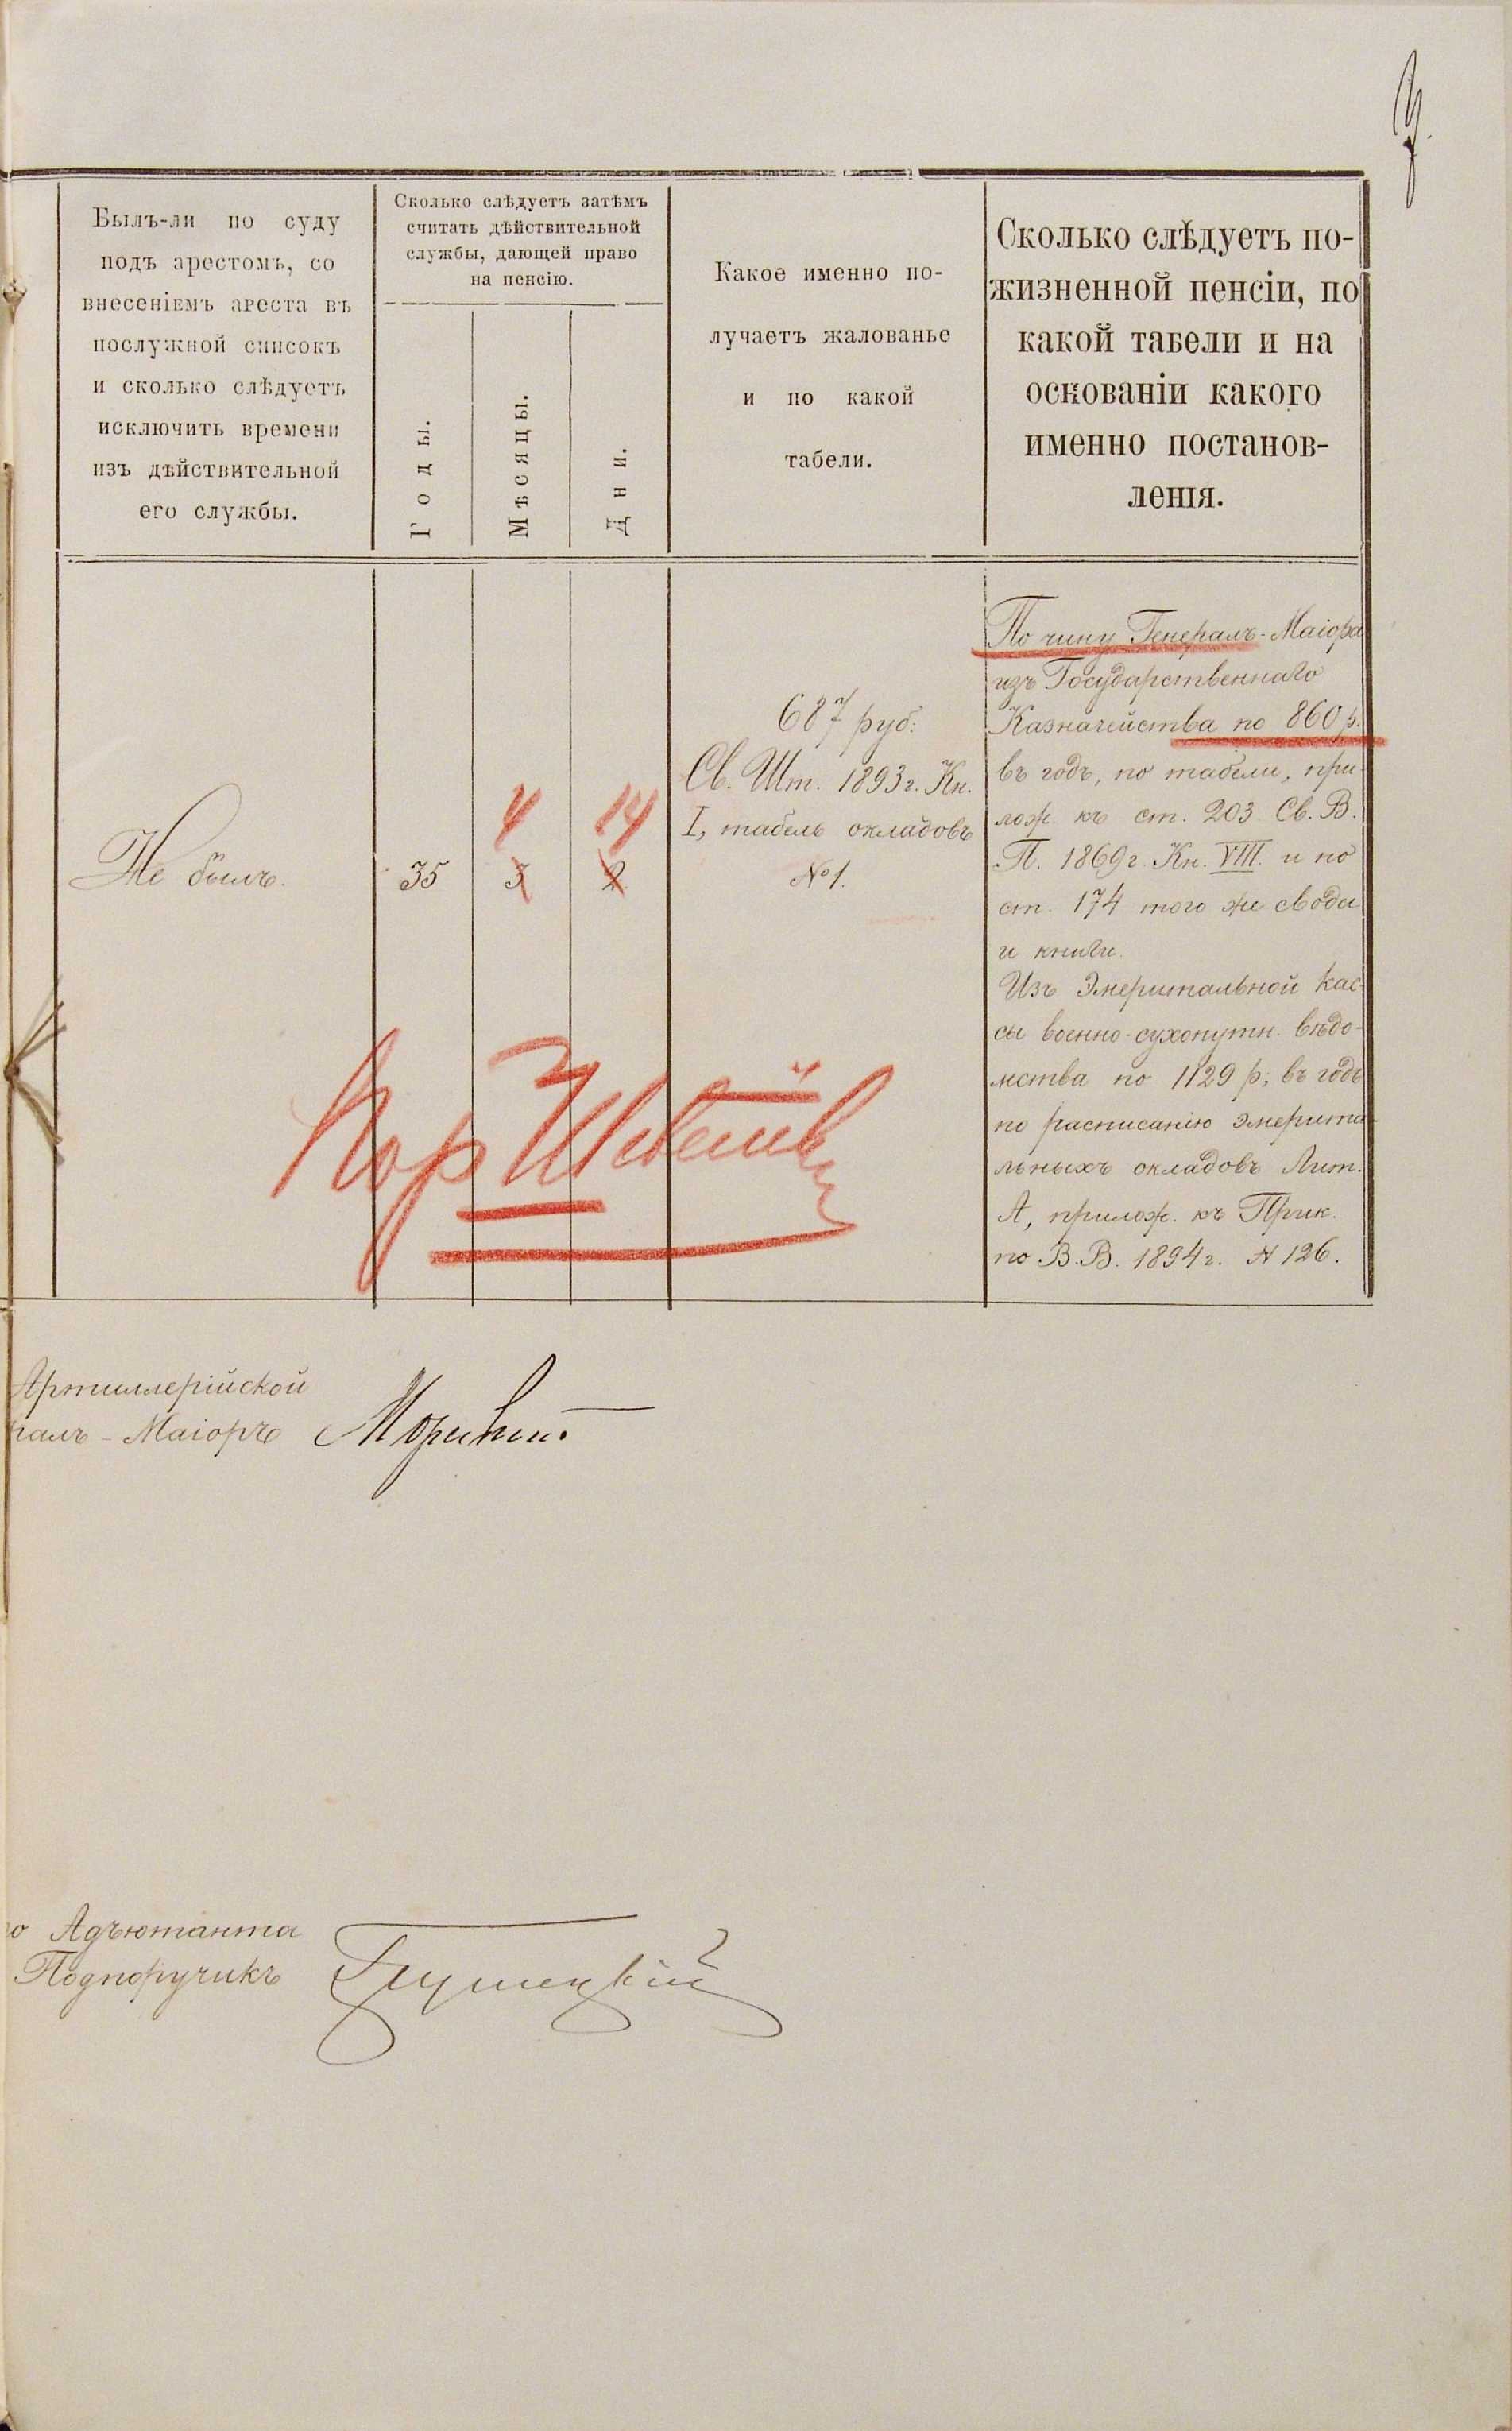 Былъ-ли по суду
подъ арестомъ, со
внесеніемъ ареста въ
послужной списокъ
и сколько слѣдуетъ
исключить времени
изъ дѣйствительной
его службы.
Сколько слѣдуетъ затѣмъ
считать дѣйствительной
службы, дающей право
на пенсію.
Годы.
Мѣсяцы.
Дни.
Какое именно по-
лучаетъ жалованье
и по какой
табели.
Сколько слѣдуетъ по-
жизненной пенсіи, по
какой табели и на
основаніи какого
именно постанов-
ленія.
Не былъ.
35
4
3
14
2
687 руб:
Св. Шт. 1893 г. Кн.
I, табель окладовъ
№ 1.
По чину Генералъ-Маіора
изъ Государственнаго
Казначейства по 860 р.
въ годъ, по табели, при
лож. къ ст. 203 Св. В.
П. 1869 г. Кн. VIII. и по
ст. 174 того же свода
и книги.
Изъ Эмеритальной кас-
сы военно-сухопутн. вѣдо-
мства по 1129 р; въ годъ
по расписанію эмерита-
льныхъ окладовъ Лит.
А, прилож. къ Прик.
по В.В. 1894 г. № 126.
Артиллерійской
ралъ-Маіоръ
о Адъютанта
Подпоручикъ